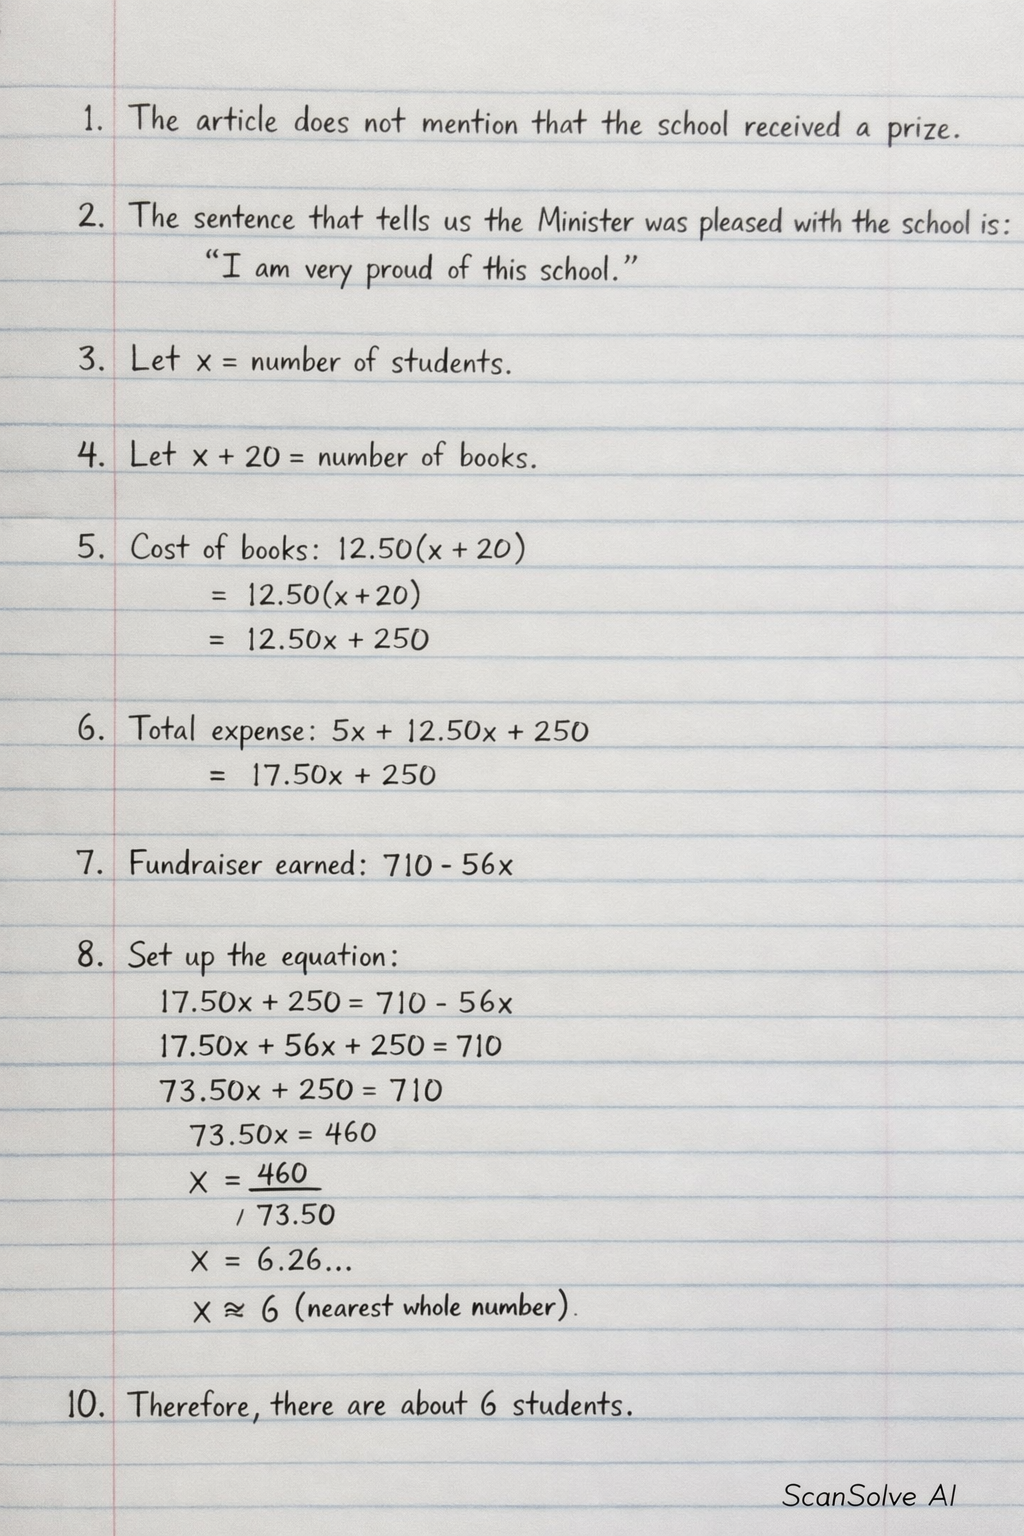 1. The article does not mention that the school received a prize.
2. The sentence that tells us the Minister was pleased with the school is:
“I am very proud of this school.”
3. Let x = number of students.
4. Let x + 20 = number of books.
5. Cost of books: 12.50(x + 20)
= 12.50(x + 20)
= 12.50x + 250
6. Total expense: 5x + 12.50x + 250
= 17.50x + 250
7. Fundraiser earned: 710 - 56x
8. Set up the equation:
17.50x + 250 = 710 - 56x
17.50x + 56x + 250 = 710
73.50x + 250 = 710
73.50x = 460
x = 460
/ 73.50
x = 6.26...
x ≈ 6 (nearest whole number).
10. Therefore, there are about 6 students.
ScanSolve AI